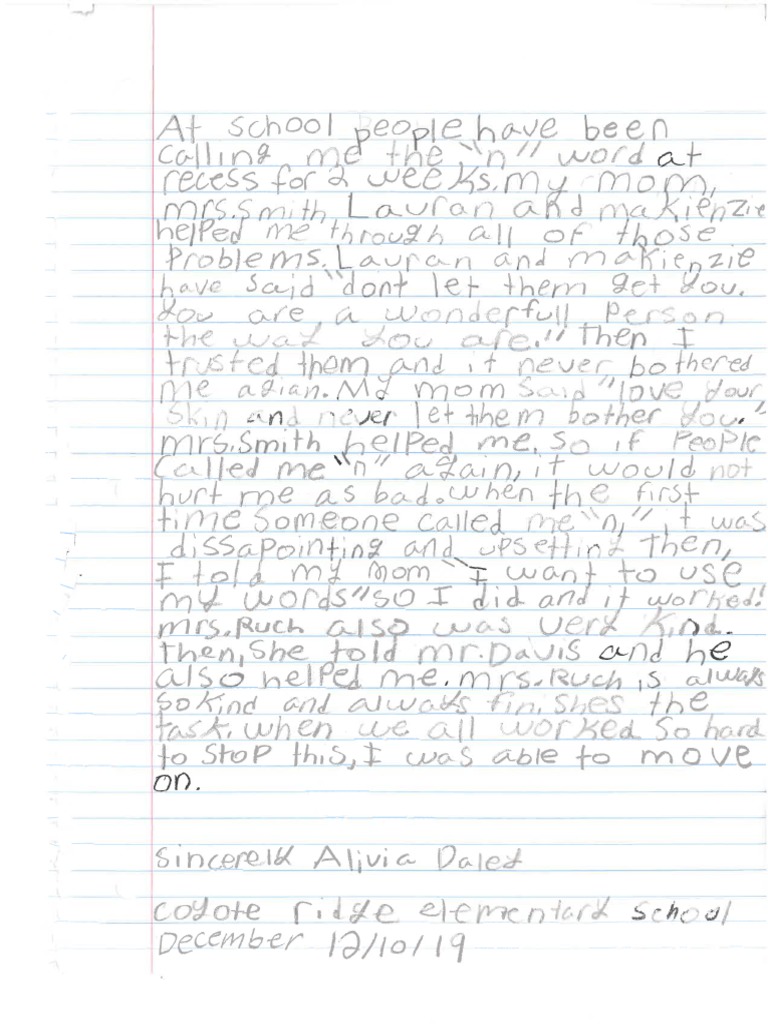 At school people have been
calling me the "n" word at
recess for 2 weeks. my mom,
mrs. Smith, Lauran and makienzie
helped me through all of those
problems. Lauran and makienzie
have said "dont let them get you.
you are a wonderfull person
the way you are." Then I
trusted them and it never bothered
me agian. My mom said "love your
skin and never let them bother you."
mrs. Smith helped me. So if people
called me "n" again, it would not
hurt me as bad. when the first
time someone called me "n," it was
dissapointing and upsetting Then,
I told my mom "I want to use
my words" so I did and it worked!
mrs. Ruch also was very kind.
then, she told mr. Davis and he
also helped me. mrs. Ruch is always
so kind and always finishes the
task. when we all worked so hard
to stop this, I was able to move
on.
Sincerely Alivia Daley
coyote ridge elementary school
December 12/10/19